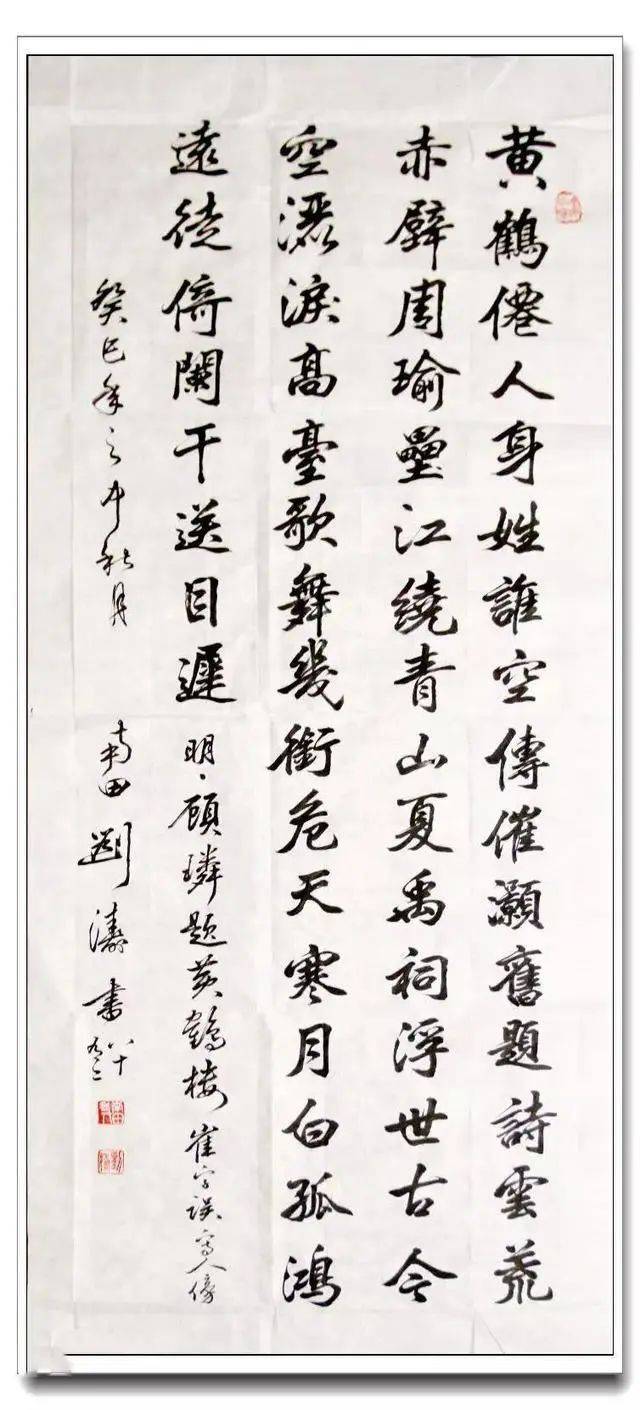 黄鶴僊人身姓誰空傳催灝舊題詩雲荒
赤壁周瑜壘江繞青山夏禹祠浮世古今
空灑淚高臺歌舞幾銜危天寒月白孤鴻
遠徒倚闌干送目遲 明、顾璘题黄鹤楼 崔字误写人傍
癸巳年之中秋月 南田 劉濤書 八十